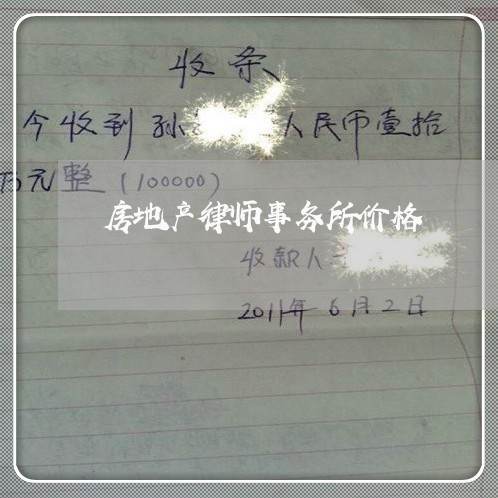 收条
今收到孙 人民币壹拾
万元整(100000)
房地产律师事务所价格
收款人
2011年6月2日